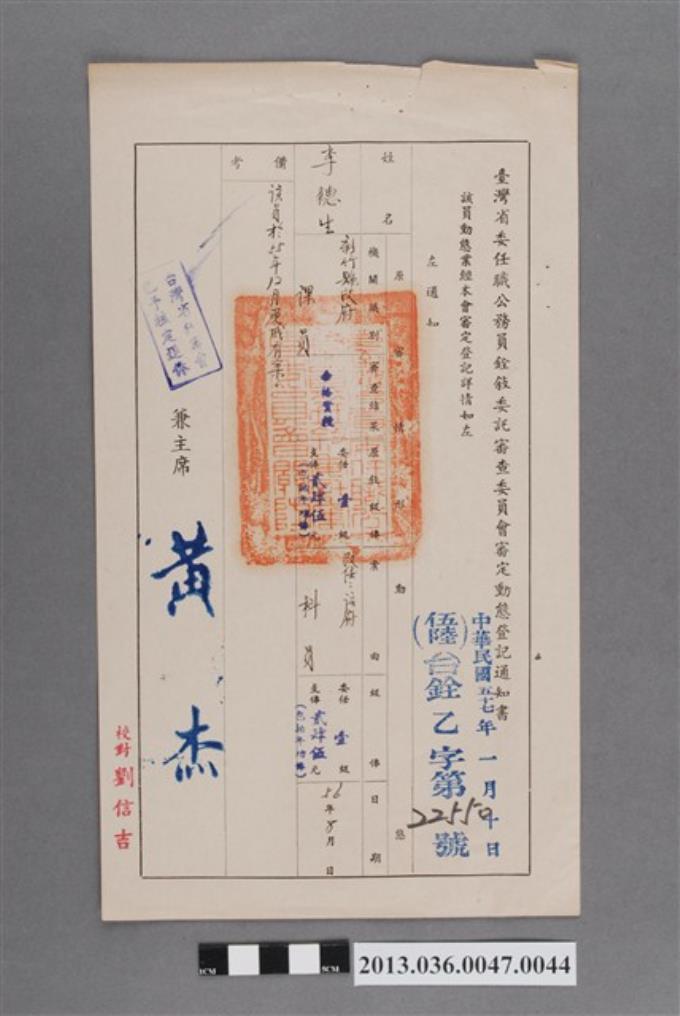 臺灣省委任職公務員銓敍委託審查委員會審定動態登記通知書
中華民國五十七年一月十日
(伍陸)台銓乙字第22550號
該員動態業經本會審定登記詳情如左
左通知
姓名
原審情形
動態
機關職別
審查結果
原敍級俸
業由
級俸
日期
李德生
新竹縣政府
課員
合格實授
委任壹級
支俸貳肆伍元
改任該府
科員
委任壹級
支俸貳肆伍元
56年8月 日
備考
該員於55年12月更成有案。
台灣省
已予核定退休
兼主席
黃杰
校對劉信吉
1CM
5CM
2013.036.0047.0044